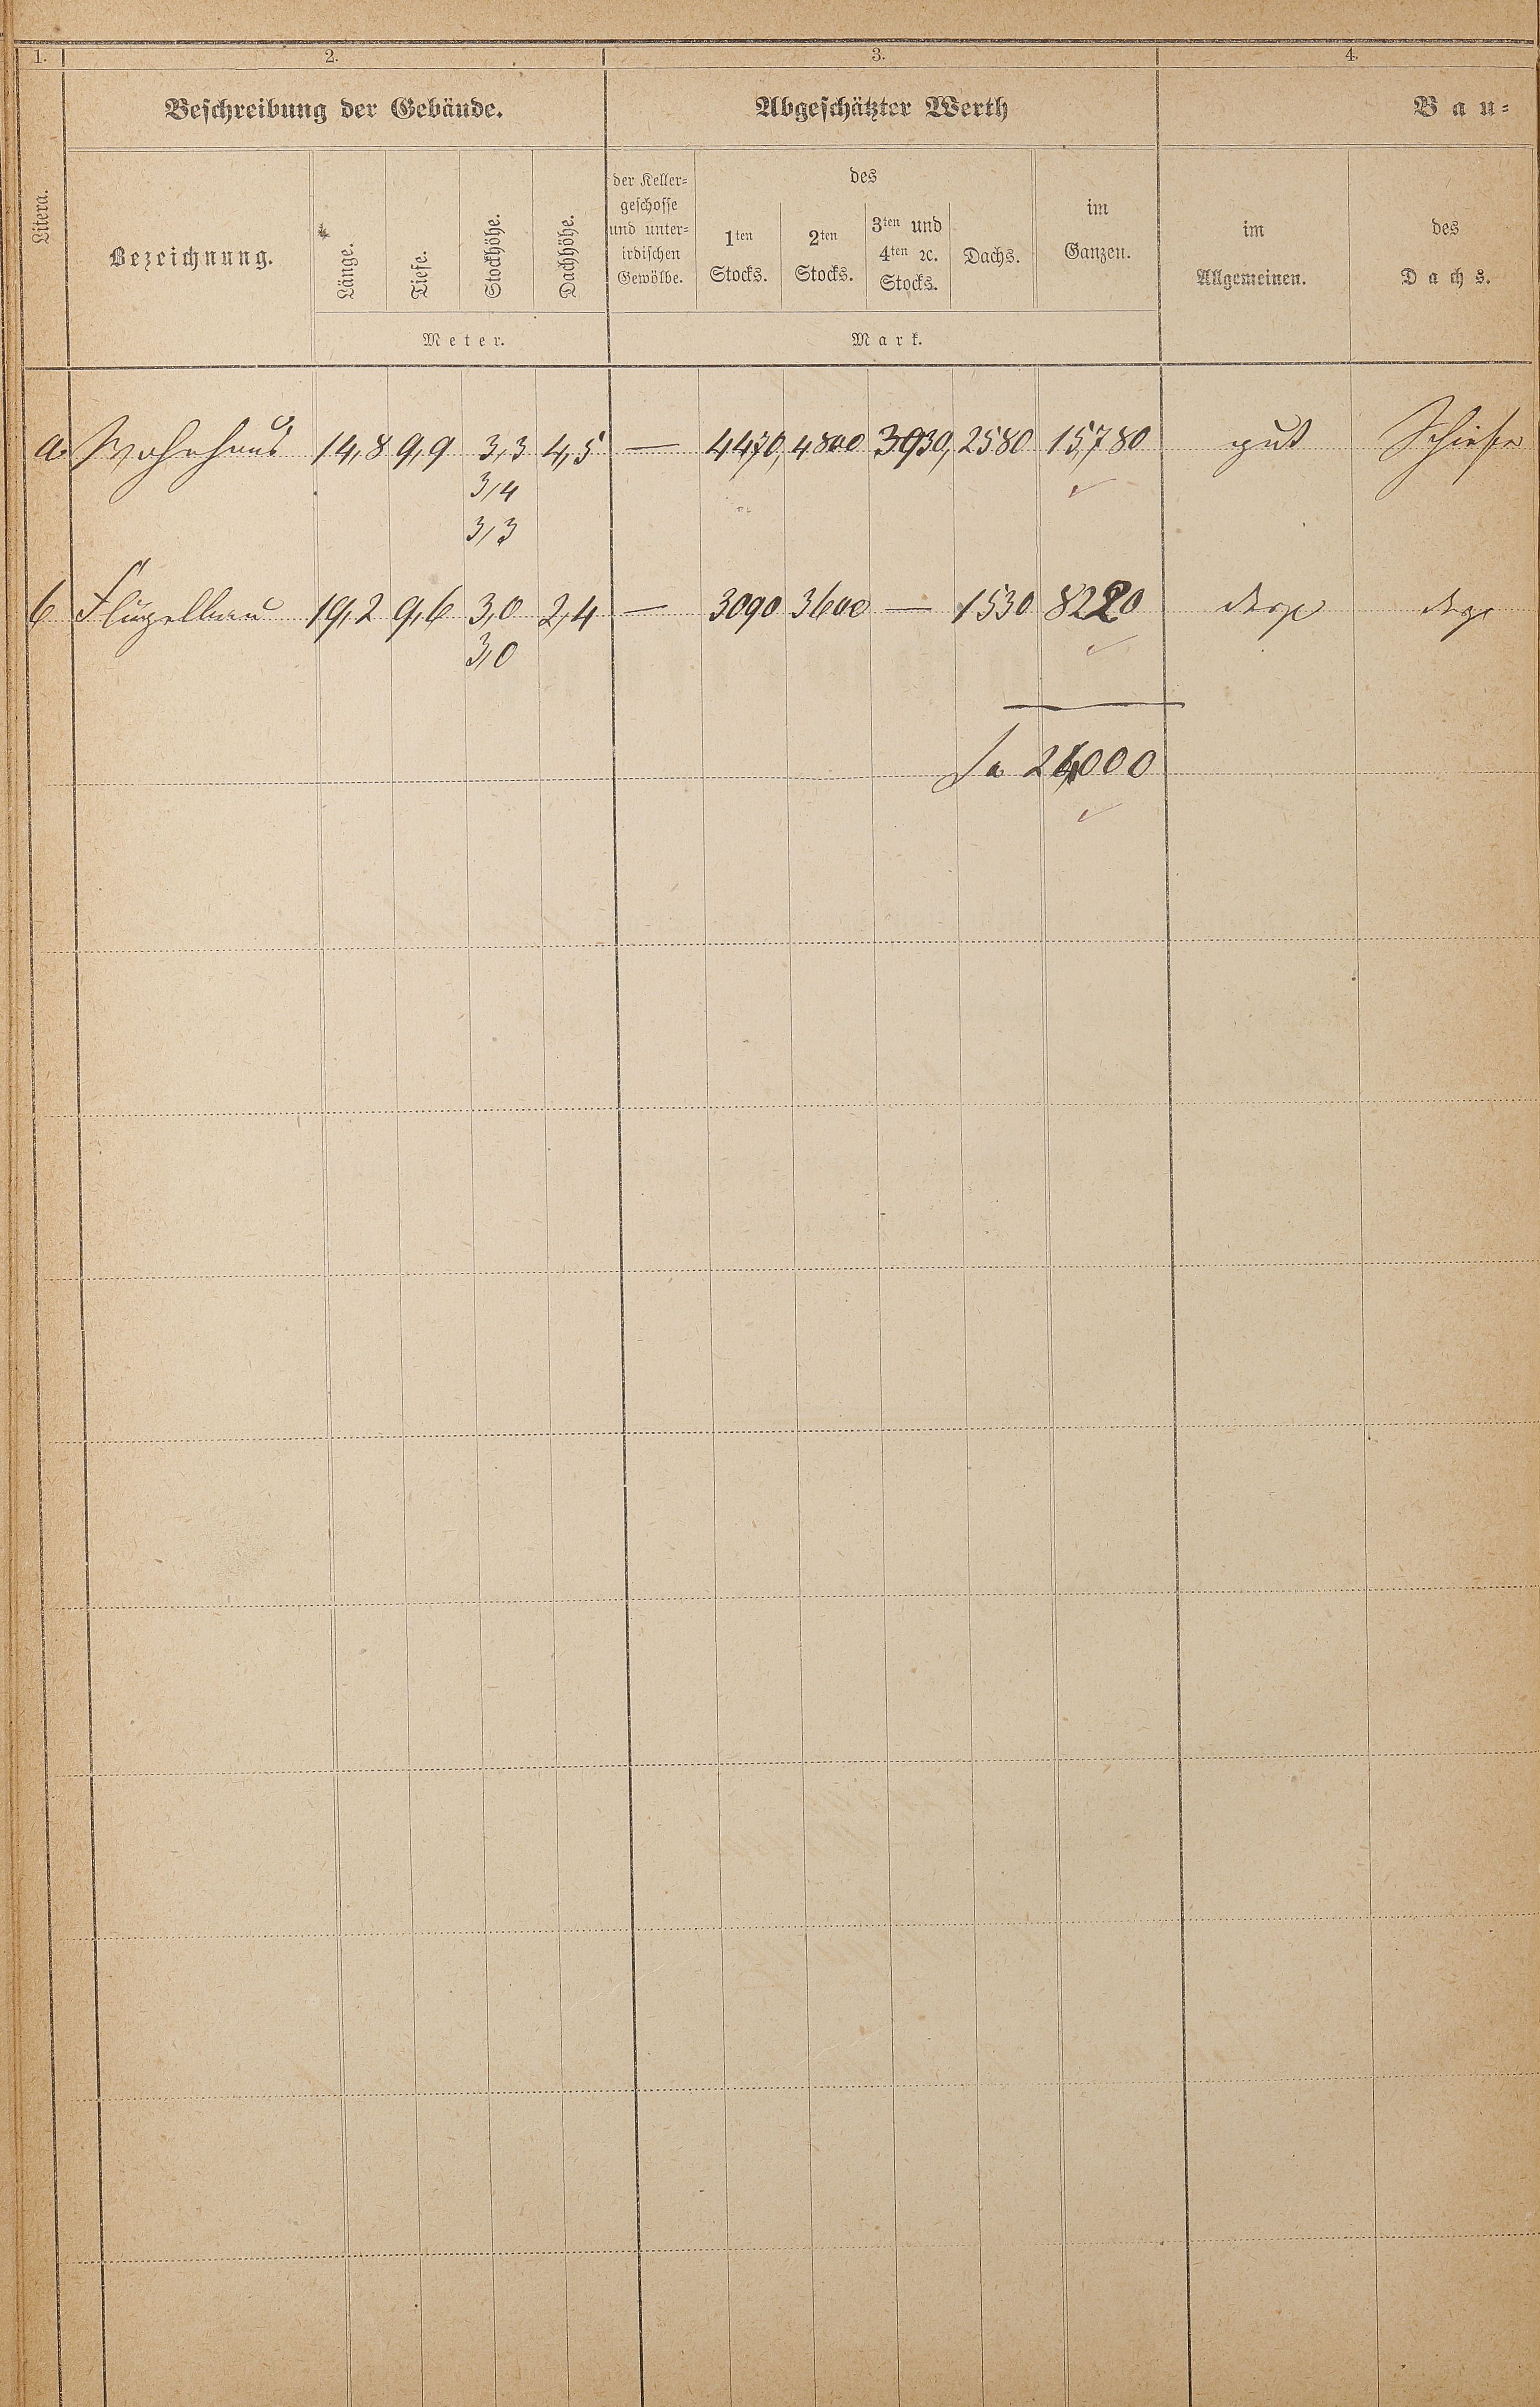 1. 2. 3. 4.
Beschreibung der Gebäude. Abgeschätzter Werth Bau-
Litera. Bezeichnung. Länge. Tiefe. Stockhöhe. Dachhöhe.
der Keller-
geschosse
und unter-
irdischen
Gewölbe.
des
1ten
Stocks.
2ten
Stocks.
3ten und
4ten ꝛc.
Stocks.
Dachs.
im
Ganzen.
im
Allgemeinen.
des
Dachs.
Meter. Mark.
a Wohnhaus 14,8 9,9 3,3 4,5 — 4470, 4800 3930, 2580 15,780 gut Schiefer
3,4
3,3
b Flügelbau 19,2 9,6 3,0 2,4 — 3090 3600 — 1530 8220 desgl desgl
3,0
Sa 24000